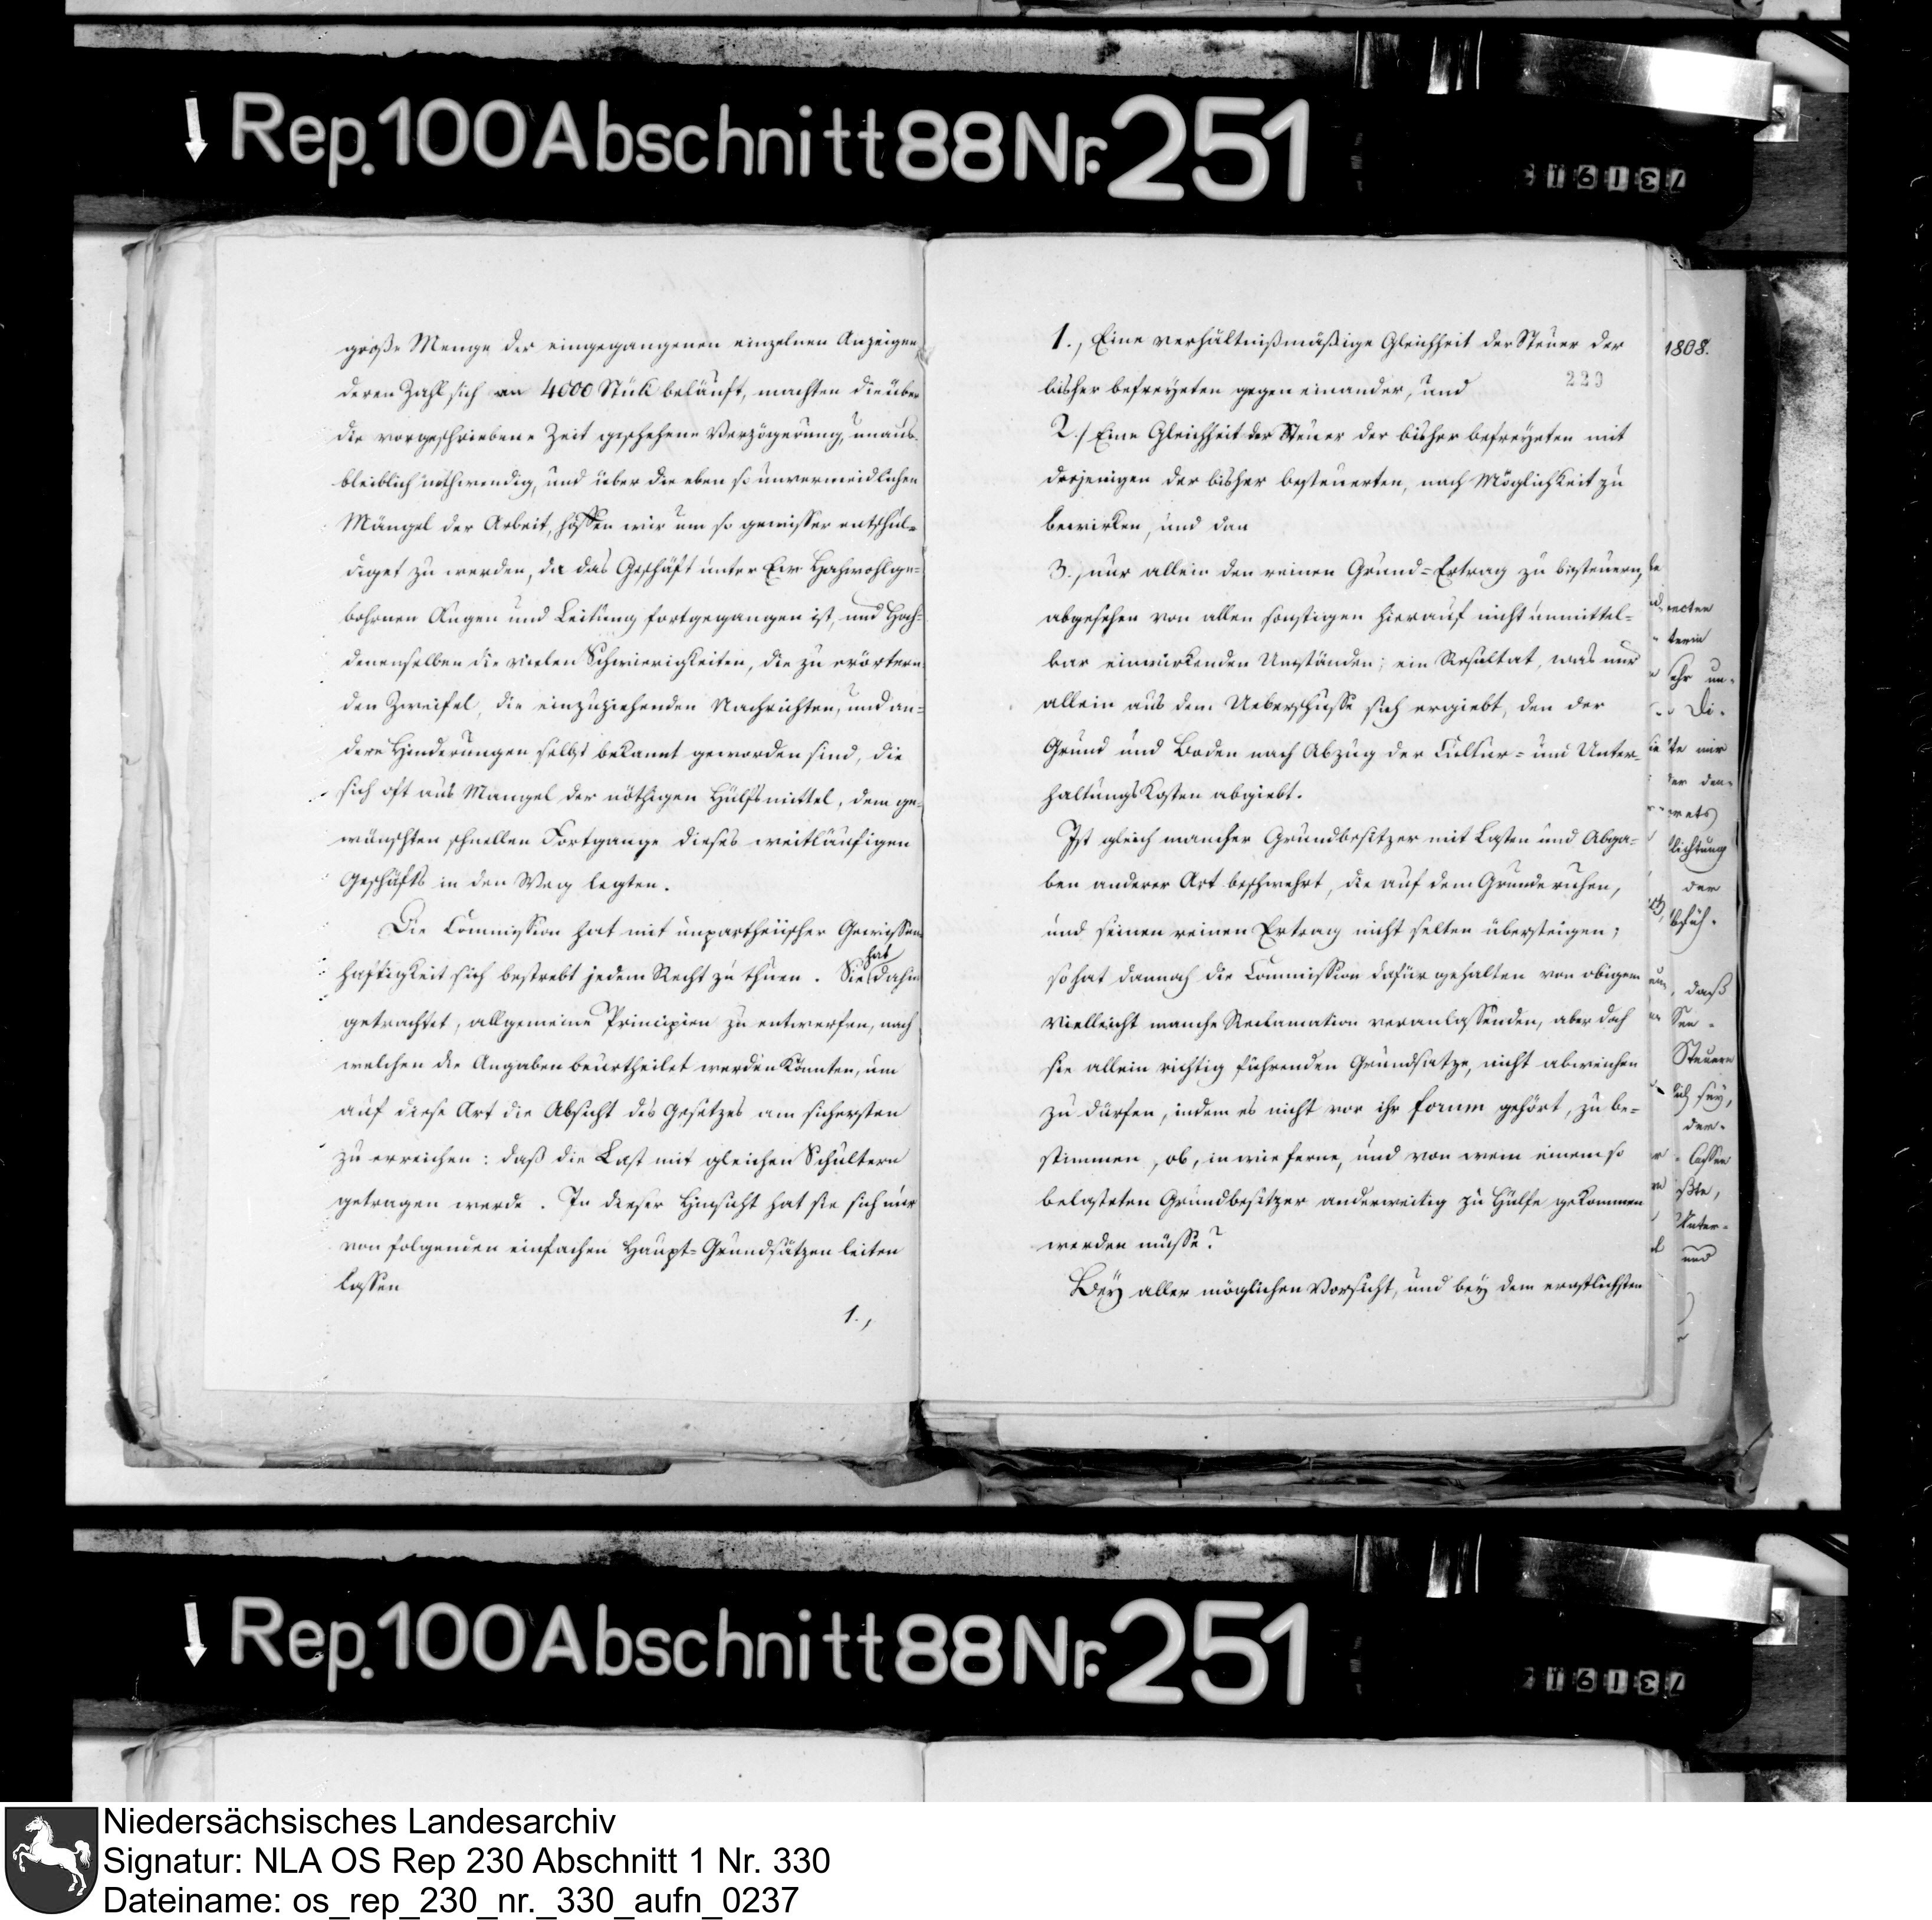 Rep. 100 Abschnitt 88 Nr. 251
große Menge der eingegangenen einzelnen Anzeigen
deren Zahl sich an 4000 Stük beläuft, machten die über
die vorgeschriebene Zeit geschehene Verzögerung, unaus-
bleiblich nothwendig, und über die eben so unvermeidlichen
Mängel der Arbeit, hoffen wir um so gewisser entschul-
diget zu werden, da das Geschäft unter Ew. Hochwohlge-
bohrnen Augen und Leitung fortgegangen ist, und Hoch-
denenselben die vielen Schwierigkeiten, die zu erörtern-
den Zweifel, die einzuziehenden Nachrichten, und an-
dere Hinderungen selbst bekannt geworden sind, die
sich oft aus Mangel der nöthigen Hülfsmittel, dem ge-
wünschten schnellen Fortgange dieses weitläufigen
Geschäfts in den Weg legten.
Die Commission hat mit unpartheiischer Gewissen-
haftigkeit sich bestrebt jedem Recht zu thuen. Sie hat dahin
getrachtet, allgemeine Principien zu entwerfen, nach
welchen die Angaben beurtheilet werden könnten, um
auf diese Art die Absicht des Gesetzes am sichersten
zu erreichen: daß die Last mit gleichen Schultern
getragen werde. In dieser Hinsicht hat sie sich nur
von folgenden einfachen Haupt-Grundsätzen leiten
lassen
1.,
1., Eine verhältnißmäßige Gleichheit der Steuer der
220
bisher befreyeten gegen einander, und
2./ Eine Gleichheit der Steuer der bisher befreyeten mit
derjenigen der bisher besteuerten, nach Möglichkeit zu
bewirken, und dan
3., nur allein den reinen Grund-Ertrag zu besteuern,
abgesehen von allen sonstigen hierauf nicht unmittel-
bar einwirkenden Umständen; ein Resultat, was nur
allein aus dem Ueberschusse sich ergiebt, den der
Grund und Boden nach Abzug der Cultur- und Unter-
haltungskosten abgiebt.
Ist gleich mancher Grundbesitzer mit Lasten und Abga-
ben anderer Art beschwehrt, die auf dem Grunde ruhen,
und seinen reinen Ertrag nicht selten übersteigen;
so hat dannoch die Commission dafür gehalten von obigem
vielleicht manche Reclamation veranlassenden, aber doch
sie allein richtig führenden Grundsatze, nicht abweichen
zu dürfen, indem es nicht vor ihr forum gehört, zu be-
stimmen, ob, in wie ferne, und von wem einem so
belasteten Grundbesitzer anderweitig zu Hülfe gekommen
werden müsse?
Bey aller möglichen Vorsicht, und bey dem ernstlichsten
1808.
Rep. 100 Abschnitt 88 Nr. 251
Niedersächsisches Landesarchiv
Signatur: NLA OS Rep 230 Abschnitt 1 Nr. 330
Dateiname: os_rep_230_nr._330_aufn_0237